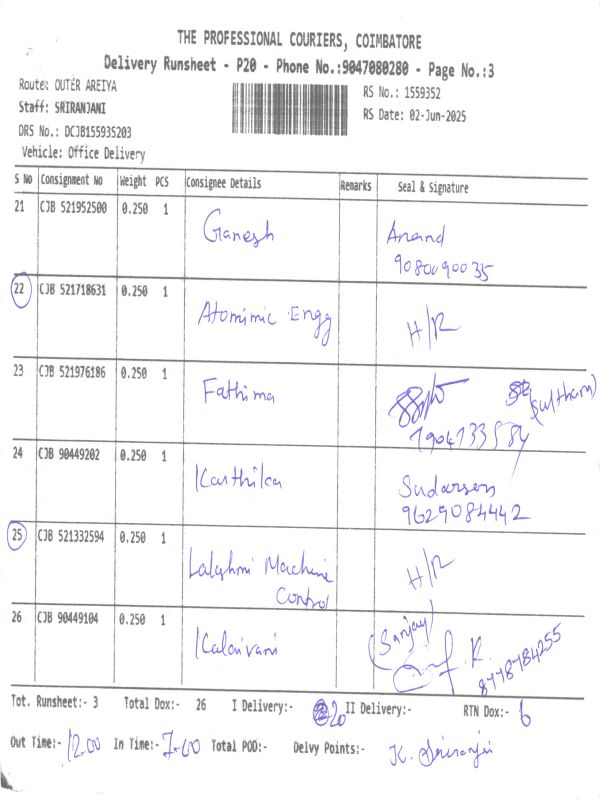 THE PROFESSIONAL COURIERS, COIMBATORE
Delivery Runsheet - P20 - Phone No.:9047080280 - Page No.:3
Route: OUTER AREIYA
RS No.: 1559352
Staff: SRIRANJANI
RS Date: 02-Jun-2025
DRS No.: DCJB155935203
Vehicle: Office Delivery
S No Consignment No Weight PCS Consignee Details Remarks Seal & Signature
21 CJB 521952500 0.250 1 Ganesh Anand
9080090035
22 CJB 521718631 0.250 1 Atomimic Engg H/R
23 CJB 521976186 0.250 1 Fathima (Sultham)
7904733584
24 CJB 90449202 0.250 1 Karthika Sudarsen
9629084442
25 CJB 521332594 0.250 1 Lakshmi Machine H/R
Control
26 CJB 90449104 0.250 1 Kalaivani (Sanjay)
K. 8778784255
Tot. Runsheet:- 3 Total Dox:- 26 I Delivery:- 20 II Delivery:- RTN Dox:- 6
Out Time:- 12.00 In Time:- 7.00 Total POD:- Delvy Points:- K. Sriranjni